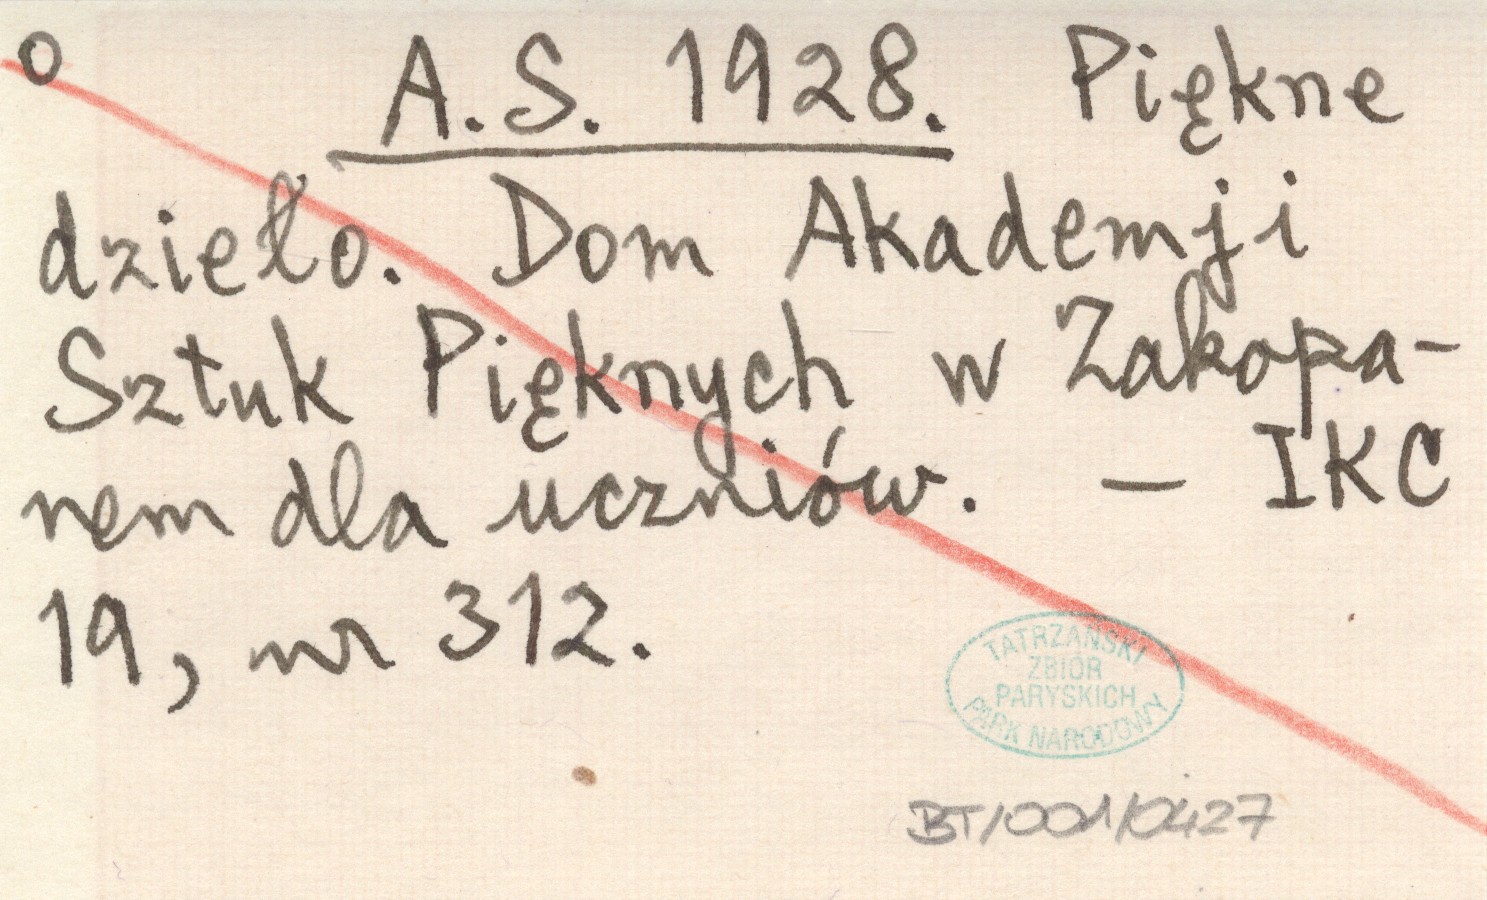 o A.S. 1928. Piękne
dzieło. Dom Akademji
Sztuk Pięknych w Zakopa-
nem dla uczniów. — IKC
19, nr 312.
TATRZAŃSKI
ZBIÓR
PARYSKICH
PARK NARODOWY
BT/001/0427